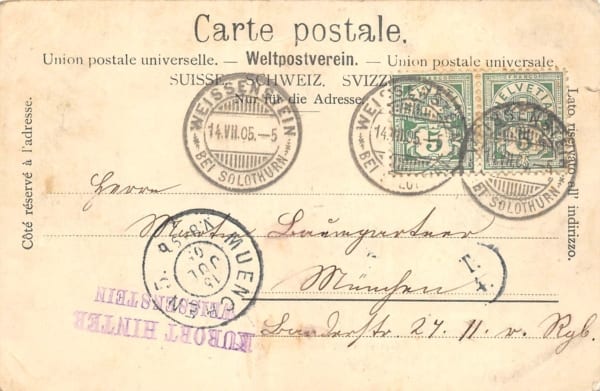 Carte postale.
Union postale universelle. — Weltpostverein. — Unione postale universale.
SUISSE. SCHWEIZ. SVIZZ
Nur für die Adresse.
Côté réservé à l'adresse.
Lato all' indirizzo.
WEISSENSTEIN
14.VII.05.–5
BEI SOLOTHURN
WEISSEN
14.VII.05.
HELVETIA
5
5
BEI SOLOTHURN
Herrn
Martin Baumgartner
München
MUENCHEN
15
JUL
L.
4.
KURORT HINTER
WEISSENSTEIN
Baaderstr. 27. II. v. Rgb.